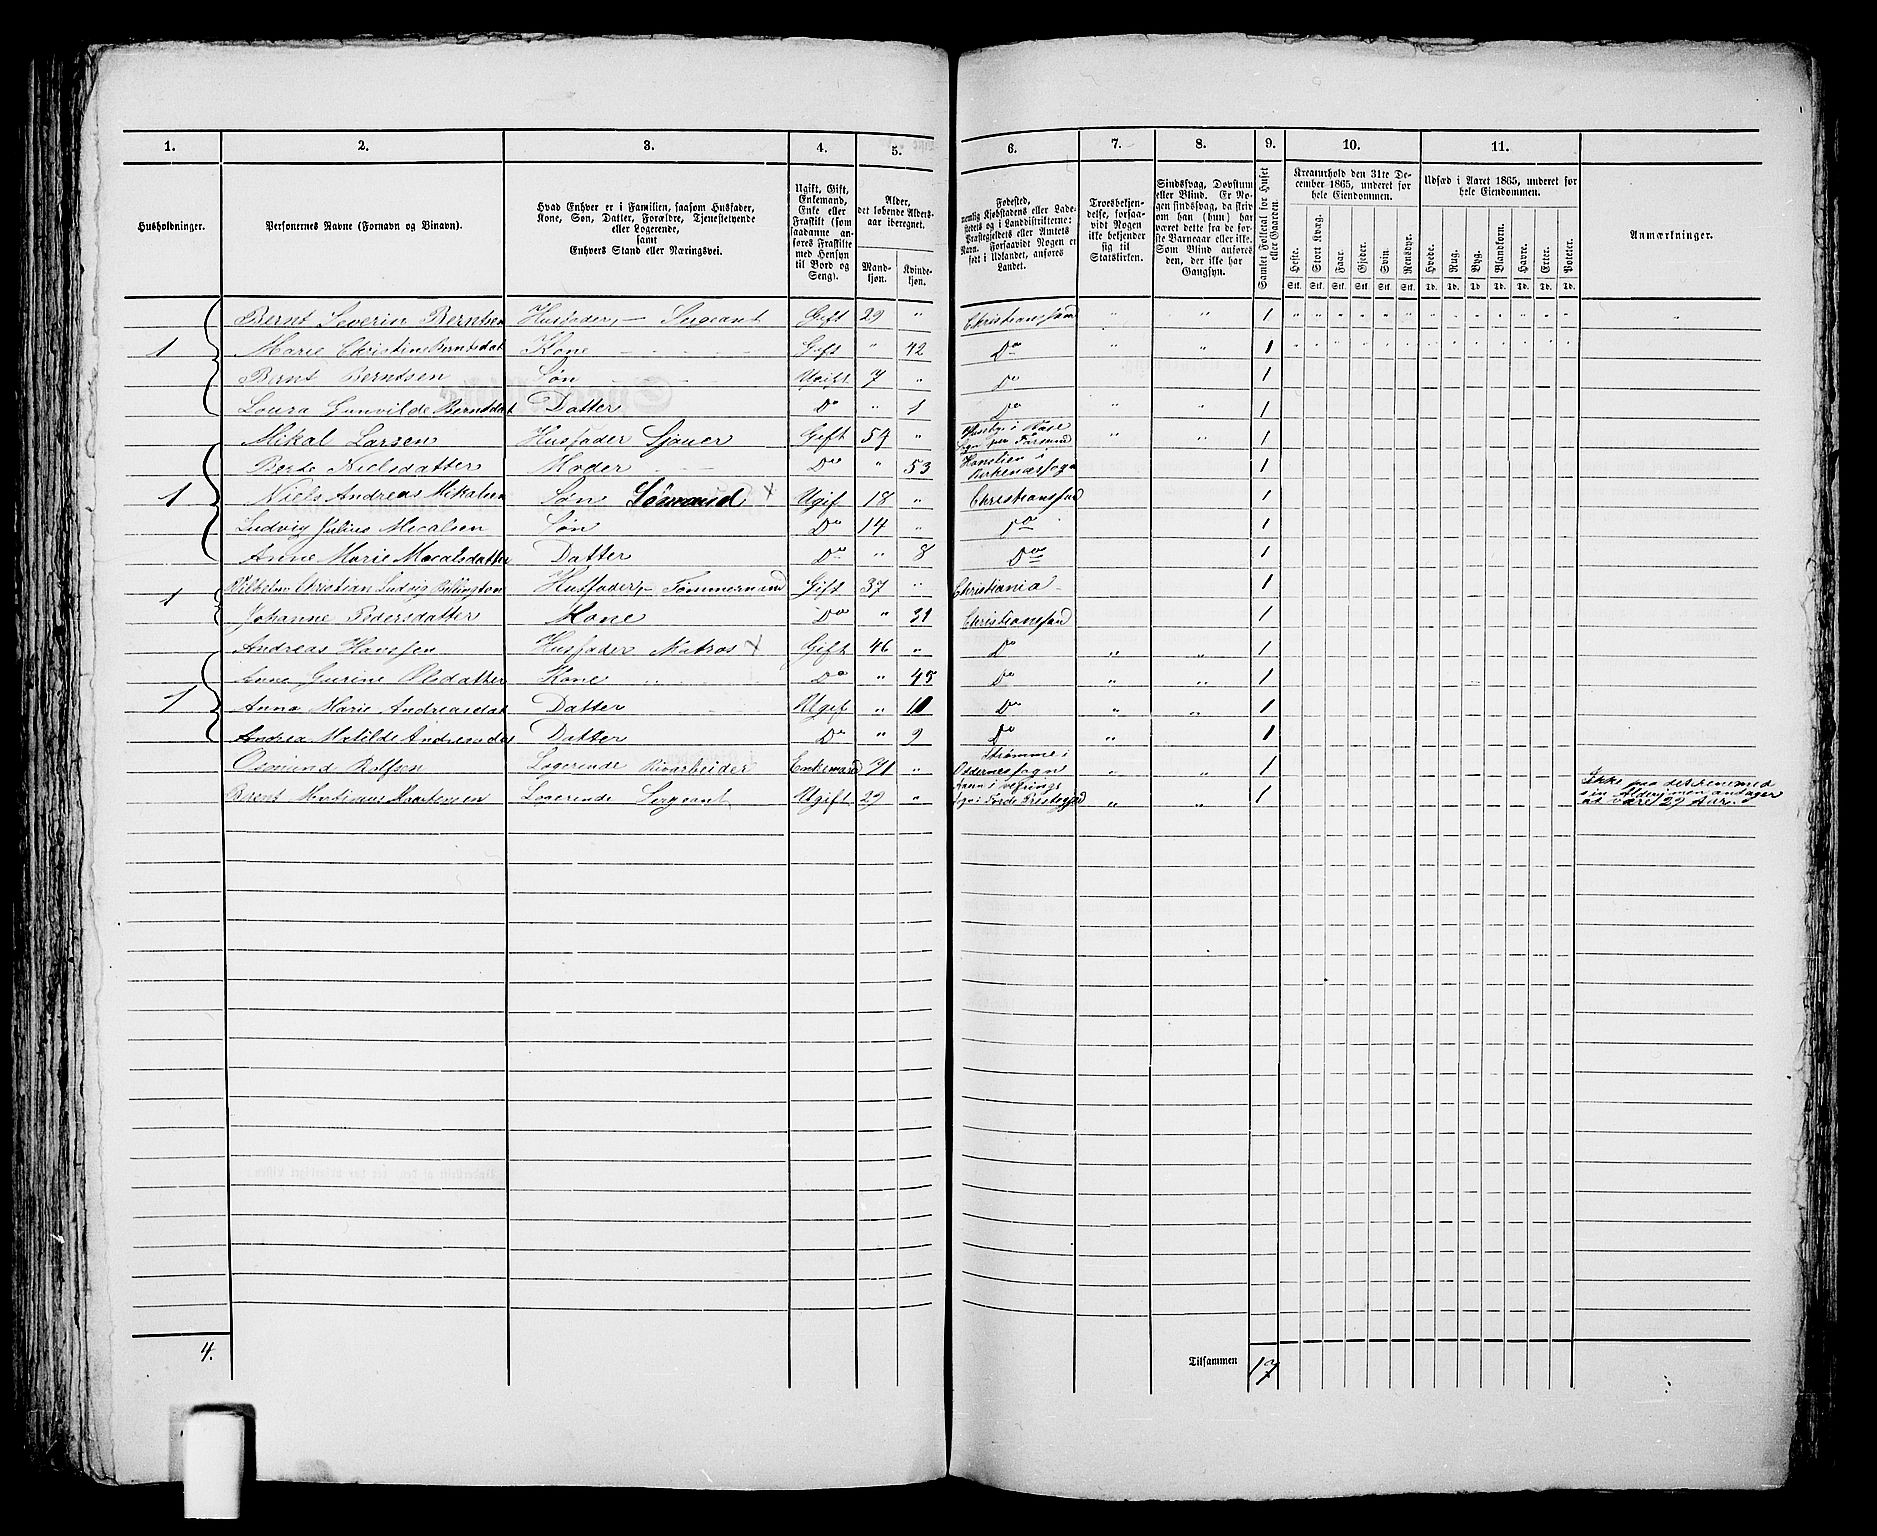 1. 2. 3. 4. 5. 6. 7. 8. 9. 10. 11.
Husholdninger.
Personernes Navne (Fornavn og Binavn).
Hvad Enhver er i Familien, saasom Husfader,
Kone, Søn, Datter, Forældre, Tjenestetyende
eller Logerende,
samt
Enhvers Stand eller Næringsvei.
Ugift, Gift,
Enkemand,
Enke eller
Fraskilt (som
saadanne an-
føres Fraskilte
med Hensyn
til Bord og
Seng).
Alder,
det løbende Alders-
aar iberegnet.
Mand-
kjøn.
Kvinde-
kjøn.
Fødested,
nemlig Kjøbstadens eller Lade-
stedets og i Landdistrikterne:
Præstegjeldets eller Amtets
Navn. Forsaavidt Nogen er
født i Udlandet, anføres
Landet.
Troesbekjen-
delse, forsaa-
vidt Nogen
ikke bekjender
sig til
Statskirken.
Sindssvag, Døvstum
eller Blind. Er No-
gen sindssvag, da skriv
om han (hun) har
været dette fra de før-
ste Barneaar eller ikke.
Som Blind anføres
den, der ikke har
Gangsyn.
Samlet Folketal for Huset
eller Gaarden.
Kreaturhold den 31te De-
cember 1865, underet for
hele Eiendommen.
Heste. Stort Kvæg. Faar. Gjeder. Svin. Rensdyr.
Stk. Stk. Stk. Stk. Stk. Stk.
Udsæd i Aaret 1865, underet for
hele Eiendommen.
Hvede. Rug. Byg. Blandkorn. Havre. Erter. Poteter.
Td. Td. Td. Td. Td. Td. Td.
Anmærkninger.
Bernt Severin Berntsen Husfader, - Sergeant Gift 29 " Christianssand " " 1
1 Marie Christine Berntsdat Kone Gift " 42 Do " " 1
Bernt Berntsen Søn Ugift 7 " Do 1
Loura Gunvilde Berntsdat Datter Do " 1 Do " " 1
Mikal Larsen Husfader Sjouer Gift 54 " i Vase " " 1
Berte Nielsdatter Moder Do " 53 i Birkenæssogn 1
1 Niels Andreas Mikalsen Søn Sømand + Ugif 18 " Christianssand 1
Ludvig Julius Micalsen Søn Do 14 " Do 1
Anne Marie Micalsdatter Datter Do " 8 Do 1
1 Wilhelm Christian Ludvig Husfader, - Tømmermand Gift 37 " Christiania 1
Johanne Pedersdatter Kone Do " 31 Christianssand 1
Andreas Husfader Matros + Gift 46 " Do " " 1
Anne Gurine Olsdatter Kone " Do " 45 Do " " 1
1 Anna Marie Andreasdat Datter Ugif " 11 Do " " 1
Andrea Matilde Andreasdat Datter Do " 9 Do 1
Osmund Rolfsen Logerende Enkemand 71 " Strømme i
Oddernessogn " " 1
Bernt Martinus Logerende Sergeant Ugift 29 " i
Sogn i Førde Præstegjeld " " 1 Ikke paa det rene med
sin Alder, men antager
at være 29 Aar
4.
Tilsammen 17